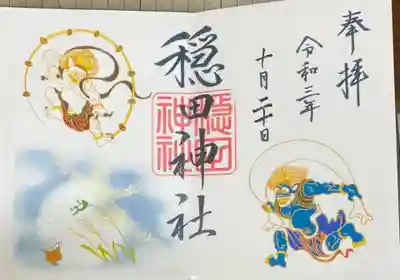 奉拝
令和三年
十月二十日
穏田神社
穏田
神社